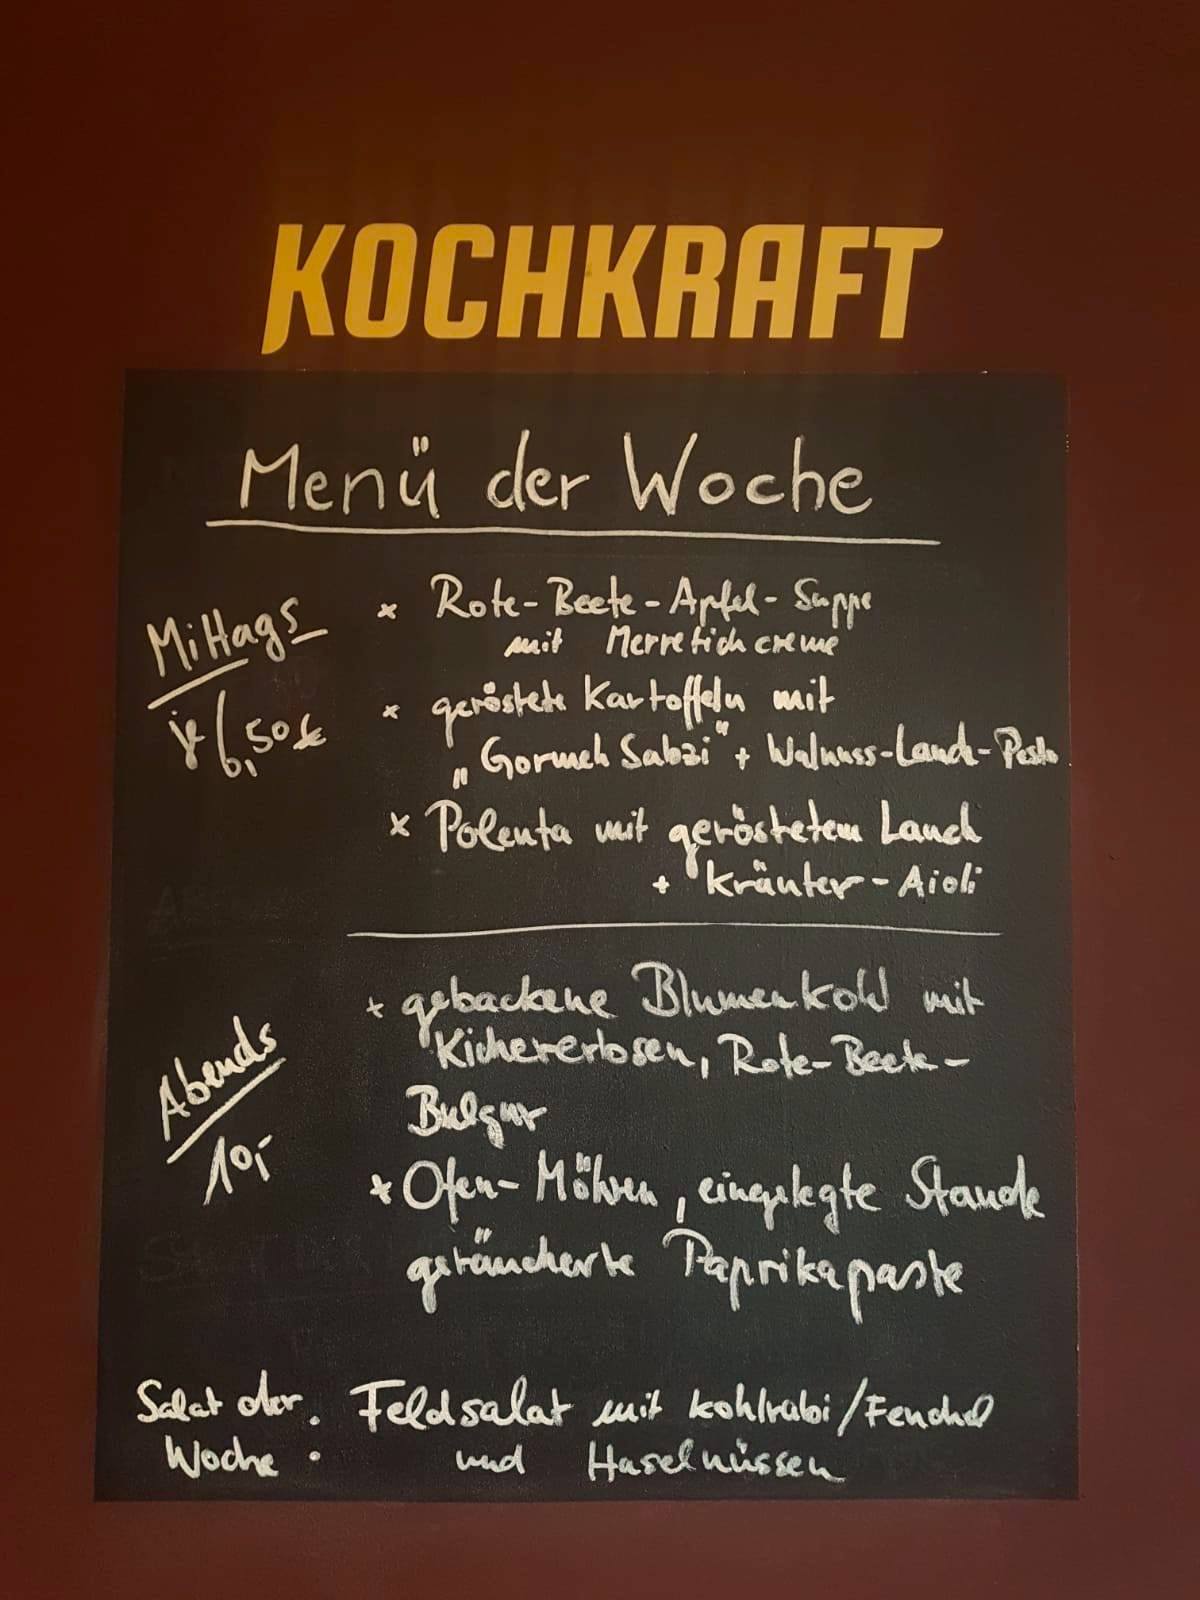 KOCHKRAFT
Menü der Woche
Mittags
je 6,50€
x Rote-Beete-Apfel-Suppe
mit Merretichcreme
x geröstete Kartoffeln mit
„Gormeh Sabzi" + Walnuss-Lauch-Pesto
x Polenta mit geröstetem Lauch
+ Kräuter-Aioli
Abends
10,-
x gebackene Blumenkohl mit
Kichererbsen, Rote-Beete-
Bulgur
x Ofen-Möhren, eingelegte Staude
geräucherte Paprikapaste
Salat der
Woche :
Feldsalat mit Kohlrabi/Fenchel
und Haselnüssen